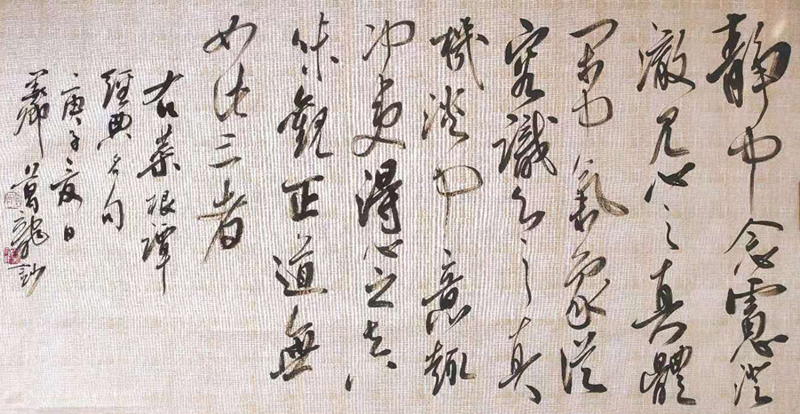 靜中念慮澄
澈見心之真體
閑中氣象從
容識心之真
機淡中意趣
冲夷得心之真
味觀正道無
如此三者
右菜根譚
經典名句
庚子夏日
萬龍